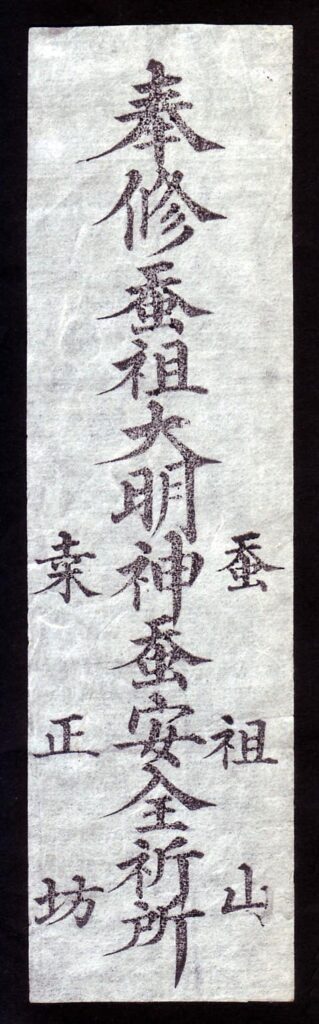 蚕祖山
奉修蚕祖大明神蚕安全祈所
桒正坊